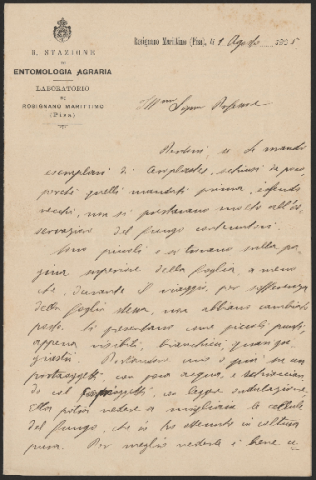 R. STAZIONE
DI
ENTOMOLOGIA AGRARIA
LABORATORIO
DI
ROSIGNANO MARITTIMO
(PISA)
Rosignano Marittimo (Pisa), li 1 Agosto
Signor Professore
Perdoni, se Le mando
esemplari di Ceroplastes,
poiché quelli mandati prima, essendo
vecchi, non si prestavano molto all'os-
servazione del fungo
Sono piccoli e si trovano sulla pa-
gina superiore della foglia, a meno
che durante il viaggio, per sofferenza
della foglia stessa, non abbiano cambiato
posto. Si presentano come piccoli punti,
appena visibili, bianchicci, quasi
uno o più su un
portaoggetti con poca acqua, e
do col con leggera ondulazione,
Ella potrà vedere a migliaia le cellule
del fungo, che io ho ottenuto in coltura
pura. Per meglio vederle è bene